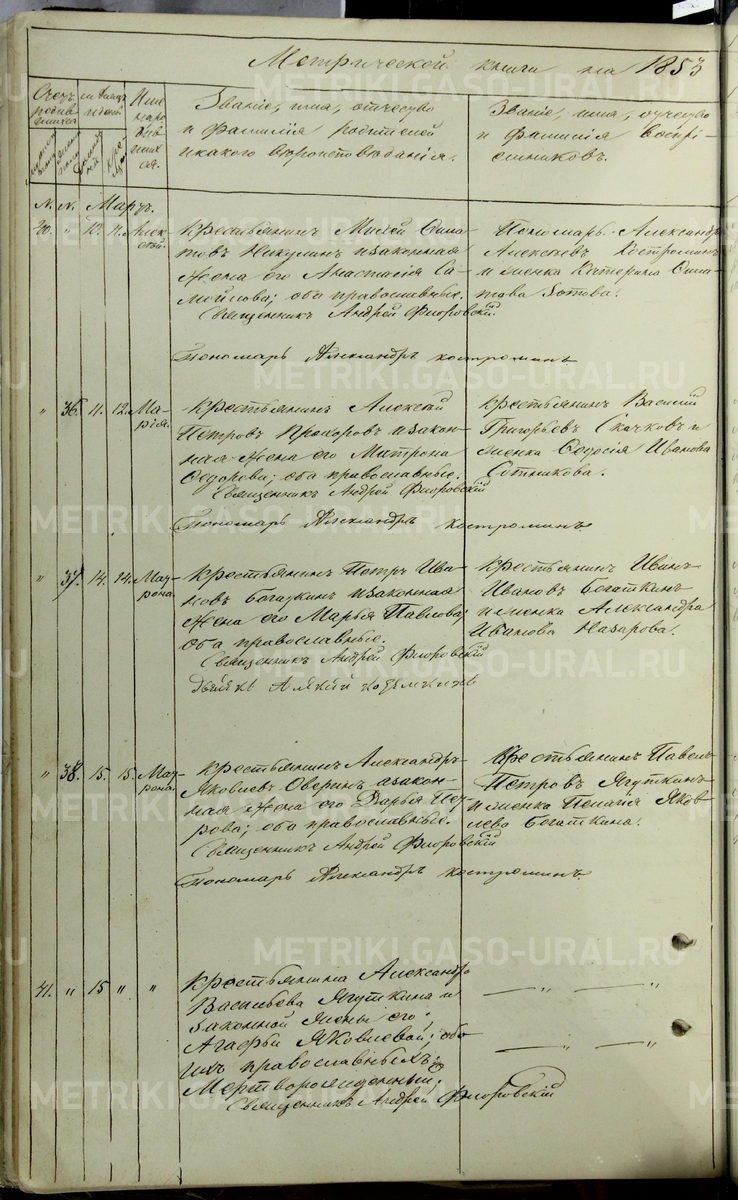 Метрической книги на 1853
Счетъ родив-шихся
мѣсяцъ и день
Имена ро-див-шихся.
Званіе, имя, отчество и фамилія родителей и какого вѣроисповѣданія.
Званіе, имя, отчество и фамилія воспрі-емниковъ.
N. N. Мартъ.
40. " 12. Алек-сѣй.
Крестьянинъ Михей Никулинъ и законная
жена его Анастасія Са-
мойлова; оба православные.
Священникъ Андрей Флоровскій
Пономарь Александръ Костроминъ
Пономарь Александръ
Алексѣевъ Костроминъ
и женка Катерина
Зотова.
" 36. 11. 12. Ма-рія.
Крестьянинъ Алексѣй
Петровъ Прохоровъ и закон-
ная жена его Матрона
Федорова; оба православные.
Священникъ Андрей Флоровскій
Пономарь Александръ Костроминъ.
Крестьянинъ Василій
Григорьевъ Скачковъ и
женка Ѳедосія Иванова
Сотникова.
" 37. 14. 14. Мат-рона.
Крестьянинъ Петръ Ива-
новъ Богаткинъ и законная
жена его Марья Павлова;
оба православные.
Священникъ Андрей Флоровскій
Крестьянинъ Иванъ
Ивановъ Богаткинъ
и женка Александра
Иванова Назарова.
" 38. 15. 15. Мат-рона.
Крестьянинъ Александръ
Яковлевъ Оверинъ и закон-
ная жена его Дарья Пет-
рова; оба православные.
Священникъ Андрей Флоровскій
Пономарь Александръ Костроминъ.
Крестьянинъ Павелъ
Петровъ Ягуткинъ
и женка Пелагія Яков-
лева Богаткина.
41. " 15 " "
Крестьянина Александра
Васильева Ягуткина и
законной жены его
Агафьи Яковлевой; обо-
ихъ православныхъ;
Мертворожденный;
Священникъ Андрей Флоровскій
METRIKI.GASO-URAL.RU